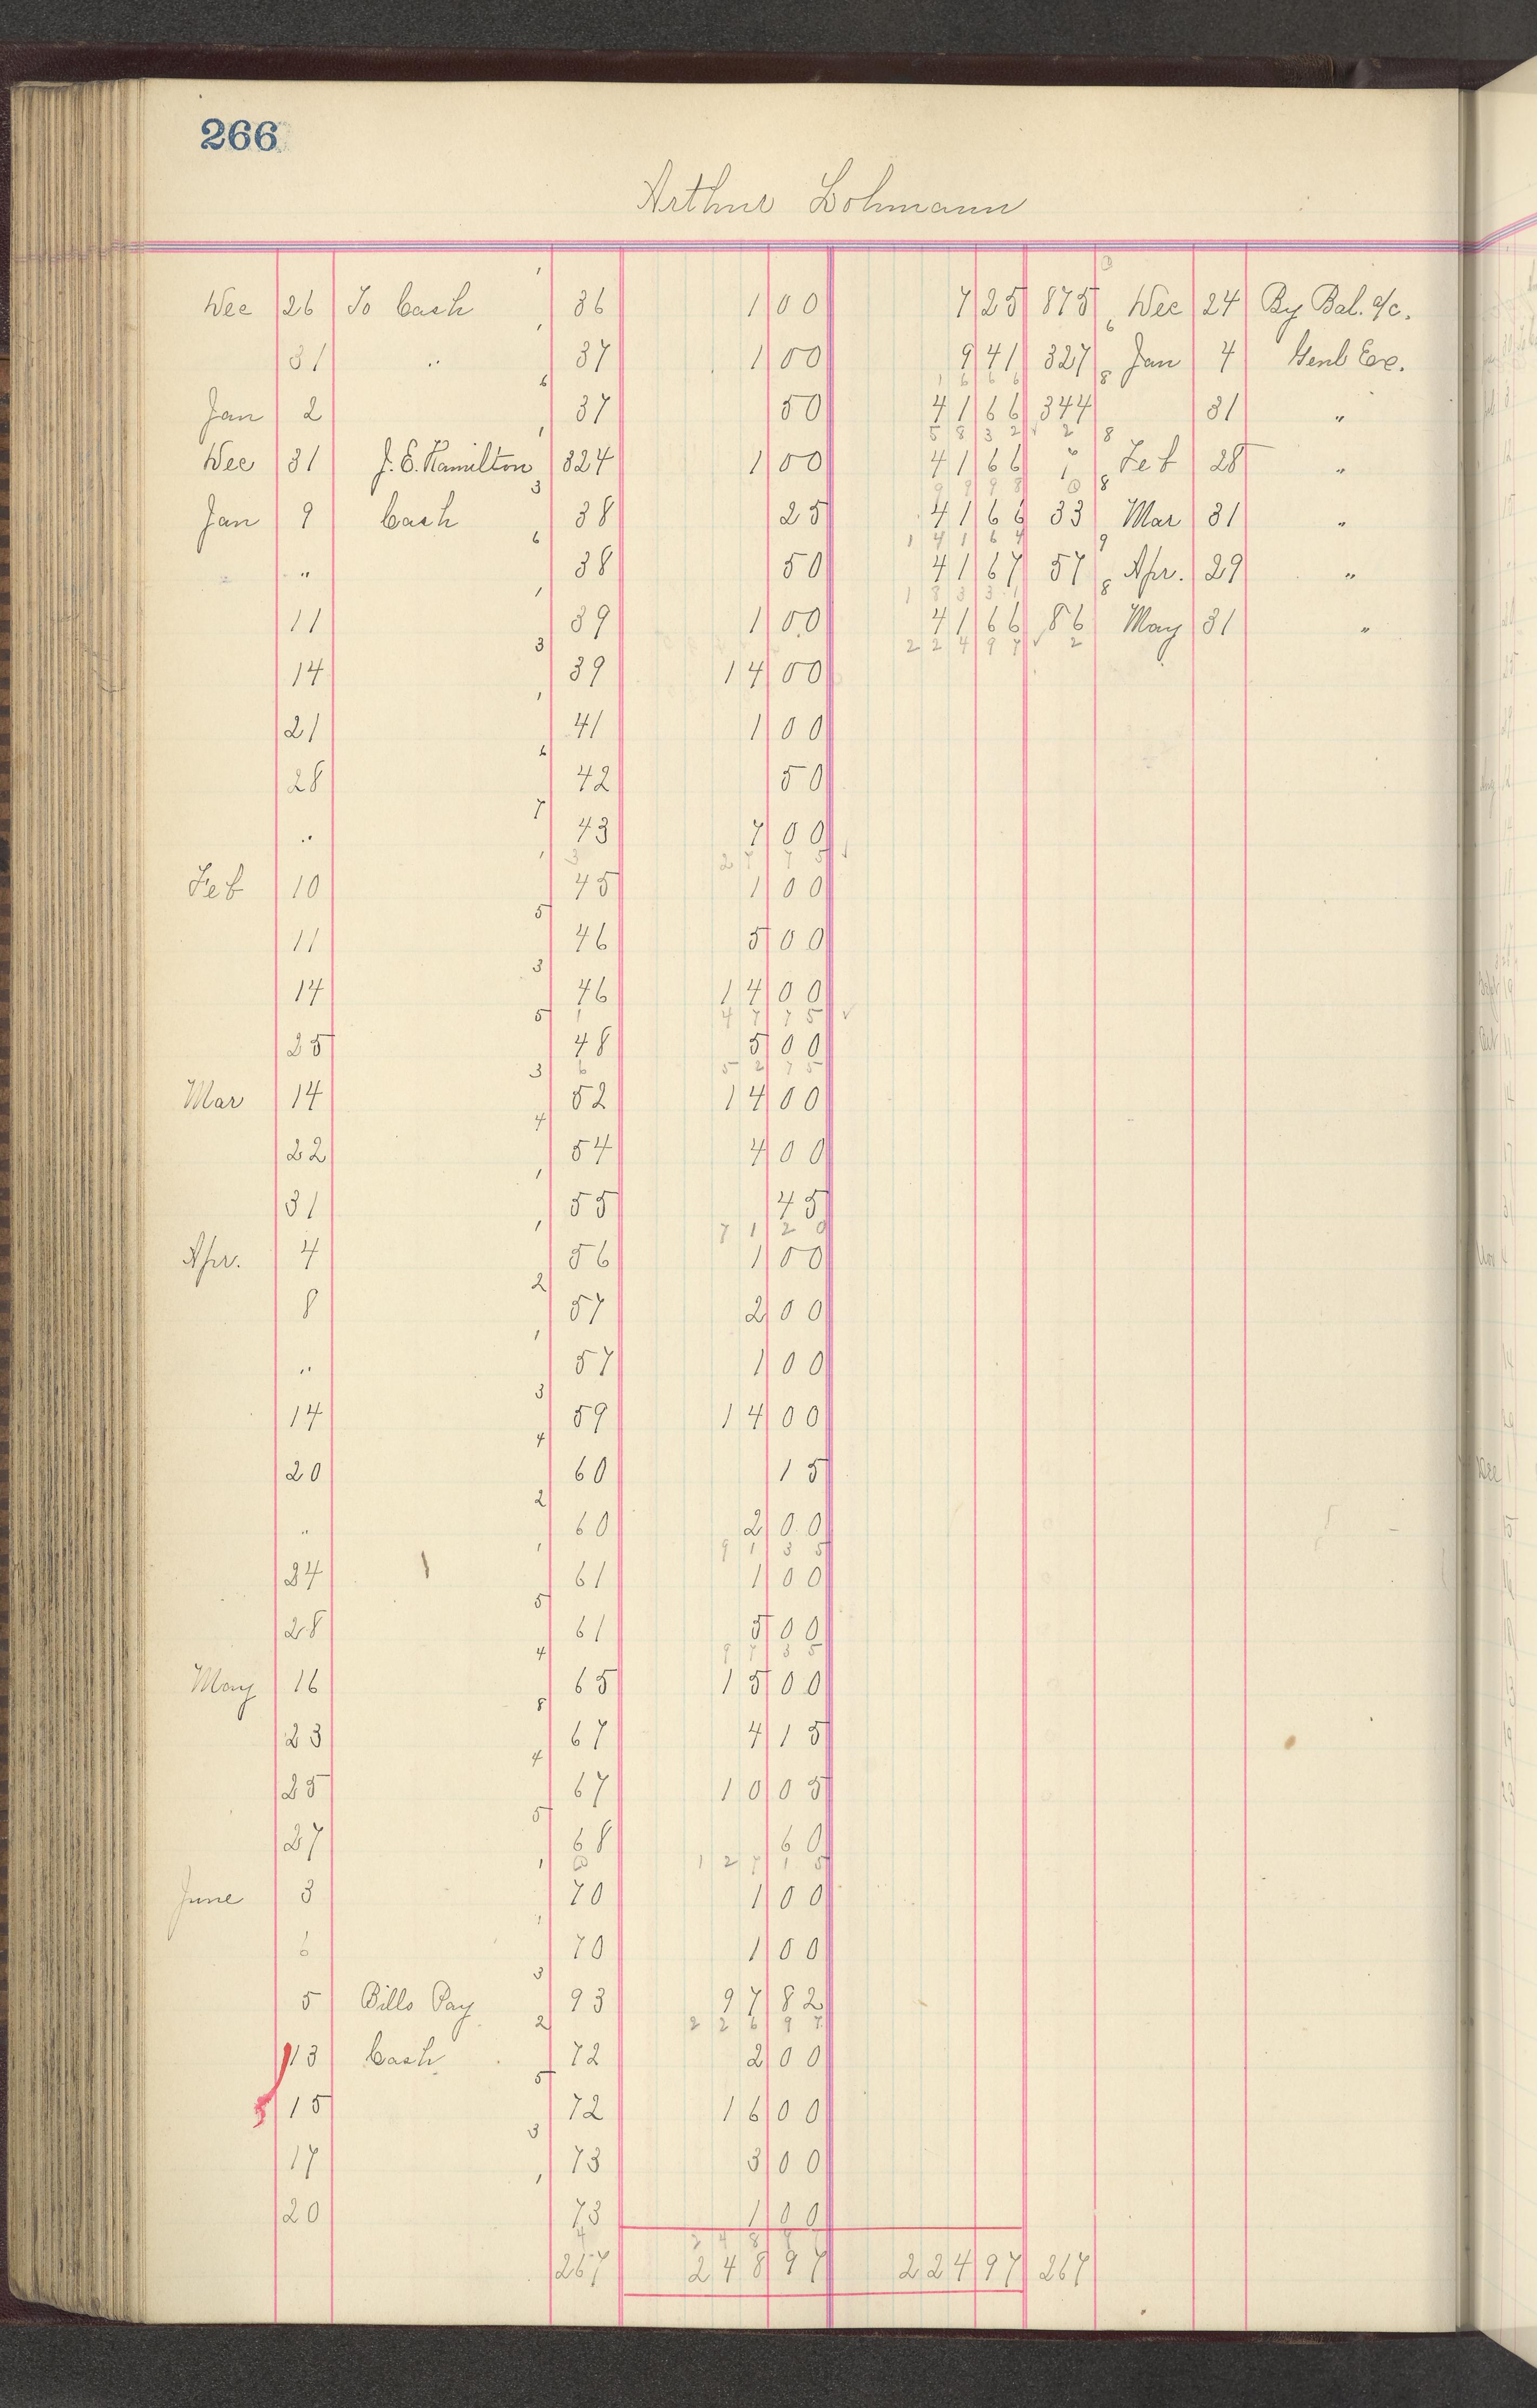 266
Arthur Lohmann
Dec 26 To Cash 36 1 00 7 25 875 Dec 24 By Bal. a/c.
31 " 37 1 00 9 41 327 Jan 4 Genl Exp.
Jan 2 37 50 41 66 344 31 "
Dec 31 J. E. Hamilton 324 1 00 41 66 Feb 28 "
Jan 9 Cash 38 25 41 66 33 Mar 31 "
" 38 50 41 67 57 Apr. 29 "
11 39 1 00 41 66 86 May 31 "
14 39 14 00
21 41 1 00
28 42 50
" 43 7 00
27 75
Feb 10 45 1 00
11 46 5 00
14 46 14 00
47 75
25 48 5 00
52 75
Mar 14 52 14 00
22 54 4 00
31 55 45
71 20
Apr. 4 56 1 00
8 57 2 00
" 57 1 00
14 59 14 00
20 60 15
" 60 2 00
91 35
24 61 1 00
28 61 5 00
97 35
May 16 65 15 00
23 67 4 15
25 67 10 05
27 68 60
127 15
June 3 70 1 00
6 70 1 00
5 Bills Pay 93 97 82
226 97
13 Cash 72 2 00
15 72 16 00
17 73 3 00
20 73 1 00
267 248 97 224 97 267